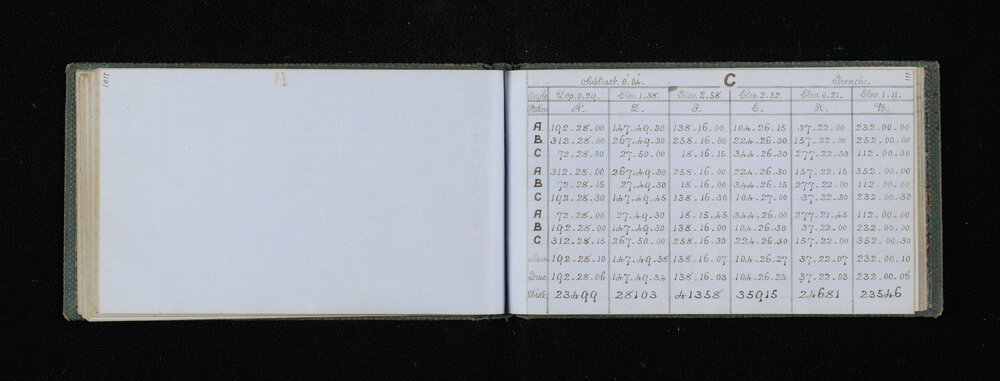 1101
111
Subtract 0'.04". C French.
Angle Dep. 0.29. Elev. 1.38. Elev. 2.58. Elev. 2.52. Elev. 0.21. Elev. 1.11.
Station A. D. E.
A 192.28.00 147.49.30 138.16.00 104.26.15 37.22.00 232.00.00
B 312.28.00 267.49.30 258.16.00 224.26.30 157.22.00 252.00.00
C 72.28.30 27.50.00 18.16.15 344.26.30 277.22.30 112.00.30
A 312.28.00 267.49.30 258.16.00 224.26.30 157.22.15 352.00.00
B 72.28.15 27.49.30 18.16.00 344.26.15 277.22.00 112.00.00
C 192.28.30 147.49.45 138.16.30 104.27.00 37.22.30 232.00.30
A 72.28.00 27.49.30 18.15.45 344.26.00 277.21.45 112.00.00
B 192.28.00 147.49.30 138.16.00 104.26.30 37.22.00 232.00.00
C 312.28.15 267.50.00 258.16.30 224.26.30 157.22.00 352.00.30
Mean 192.28.10 147.49.38 138.16.07 104.26.27 37.22.07 232.00.10
True 192.28.06 147.49.34 138.16.03 104.26.23 37.22.03 232.00.06
Dist. 23499 28103 41358 35915 24681 23546